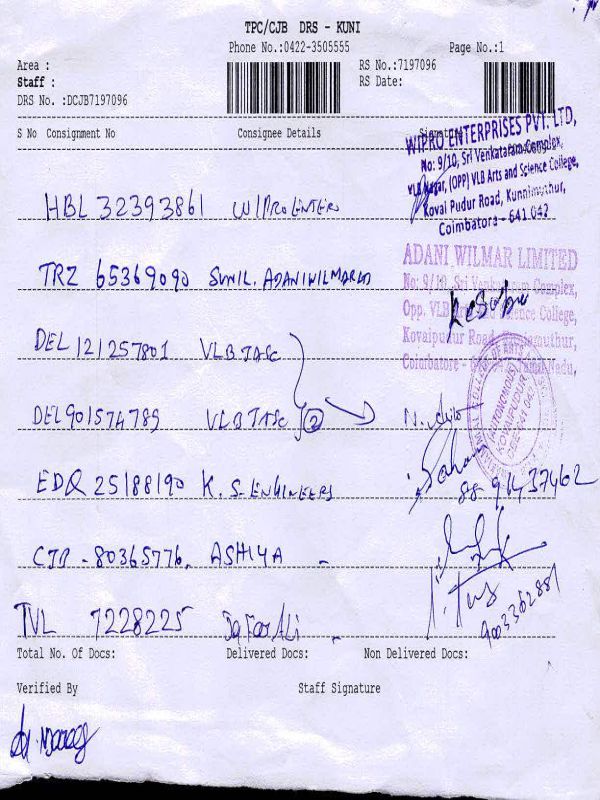 TPC/CJB DRS - KUNI
Phone No.:0422-3505555 Page No.:1
Area :
Staff :
DRS No. :DCJB7197096
RS No.:7197096
RS Date:
S No Consignment No Consignee Details Signature
WIPRO ENTERPRISES PVT. LTD,
No: 9/10, Sri Venkataram Complex,
VLB Nagar, (OPP) VLB Arts and Science College,
Kovai Pudur Road, Kunnimuthur,
Coimbatore - 641 042
HBL 32393861 WIPRO ENTER
ADANI WILMAR LIMITED
No: 9/10, Sri Venkataram Complex,
Opp. VLB Arts and Science College,
Kovaipudur Road,
Coimbatore - Tamil Nadu,
TRZ 65369090 SUNIL. ADANIWILMAR LTD
DEL 121257801 VLB JASC
DEL 901574789 VLB JASC 2
AUTONOMOUS
KOVAIPUDUR
EDQ 25188190 K. S. ENGINEERS
CTP - 80365776. ASHIYA -
TVL 7228225 Jafar Ali -
9003362881
Total No. Of Docs: Delivered Docs: Non Delivered Docs:
Verified By Staff Signature